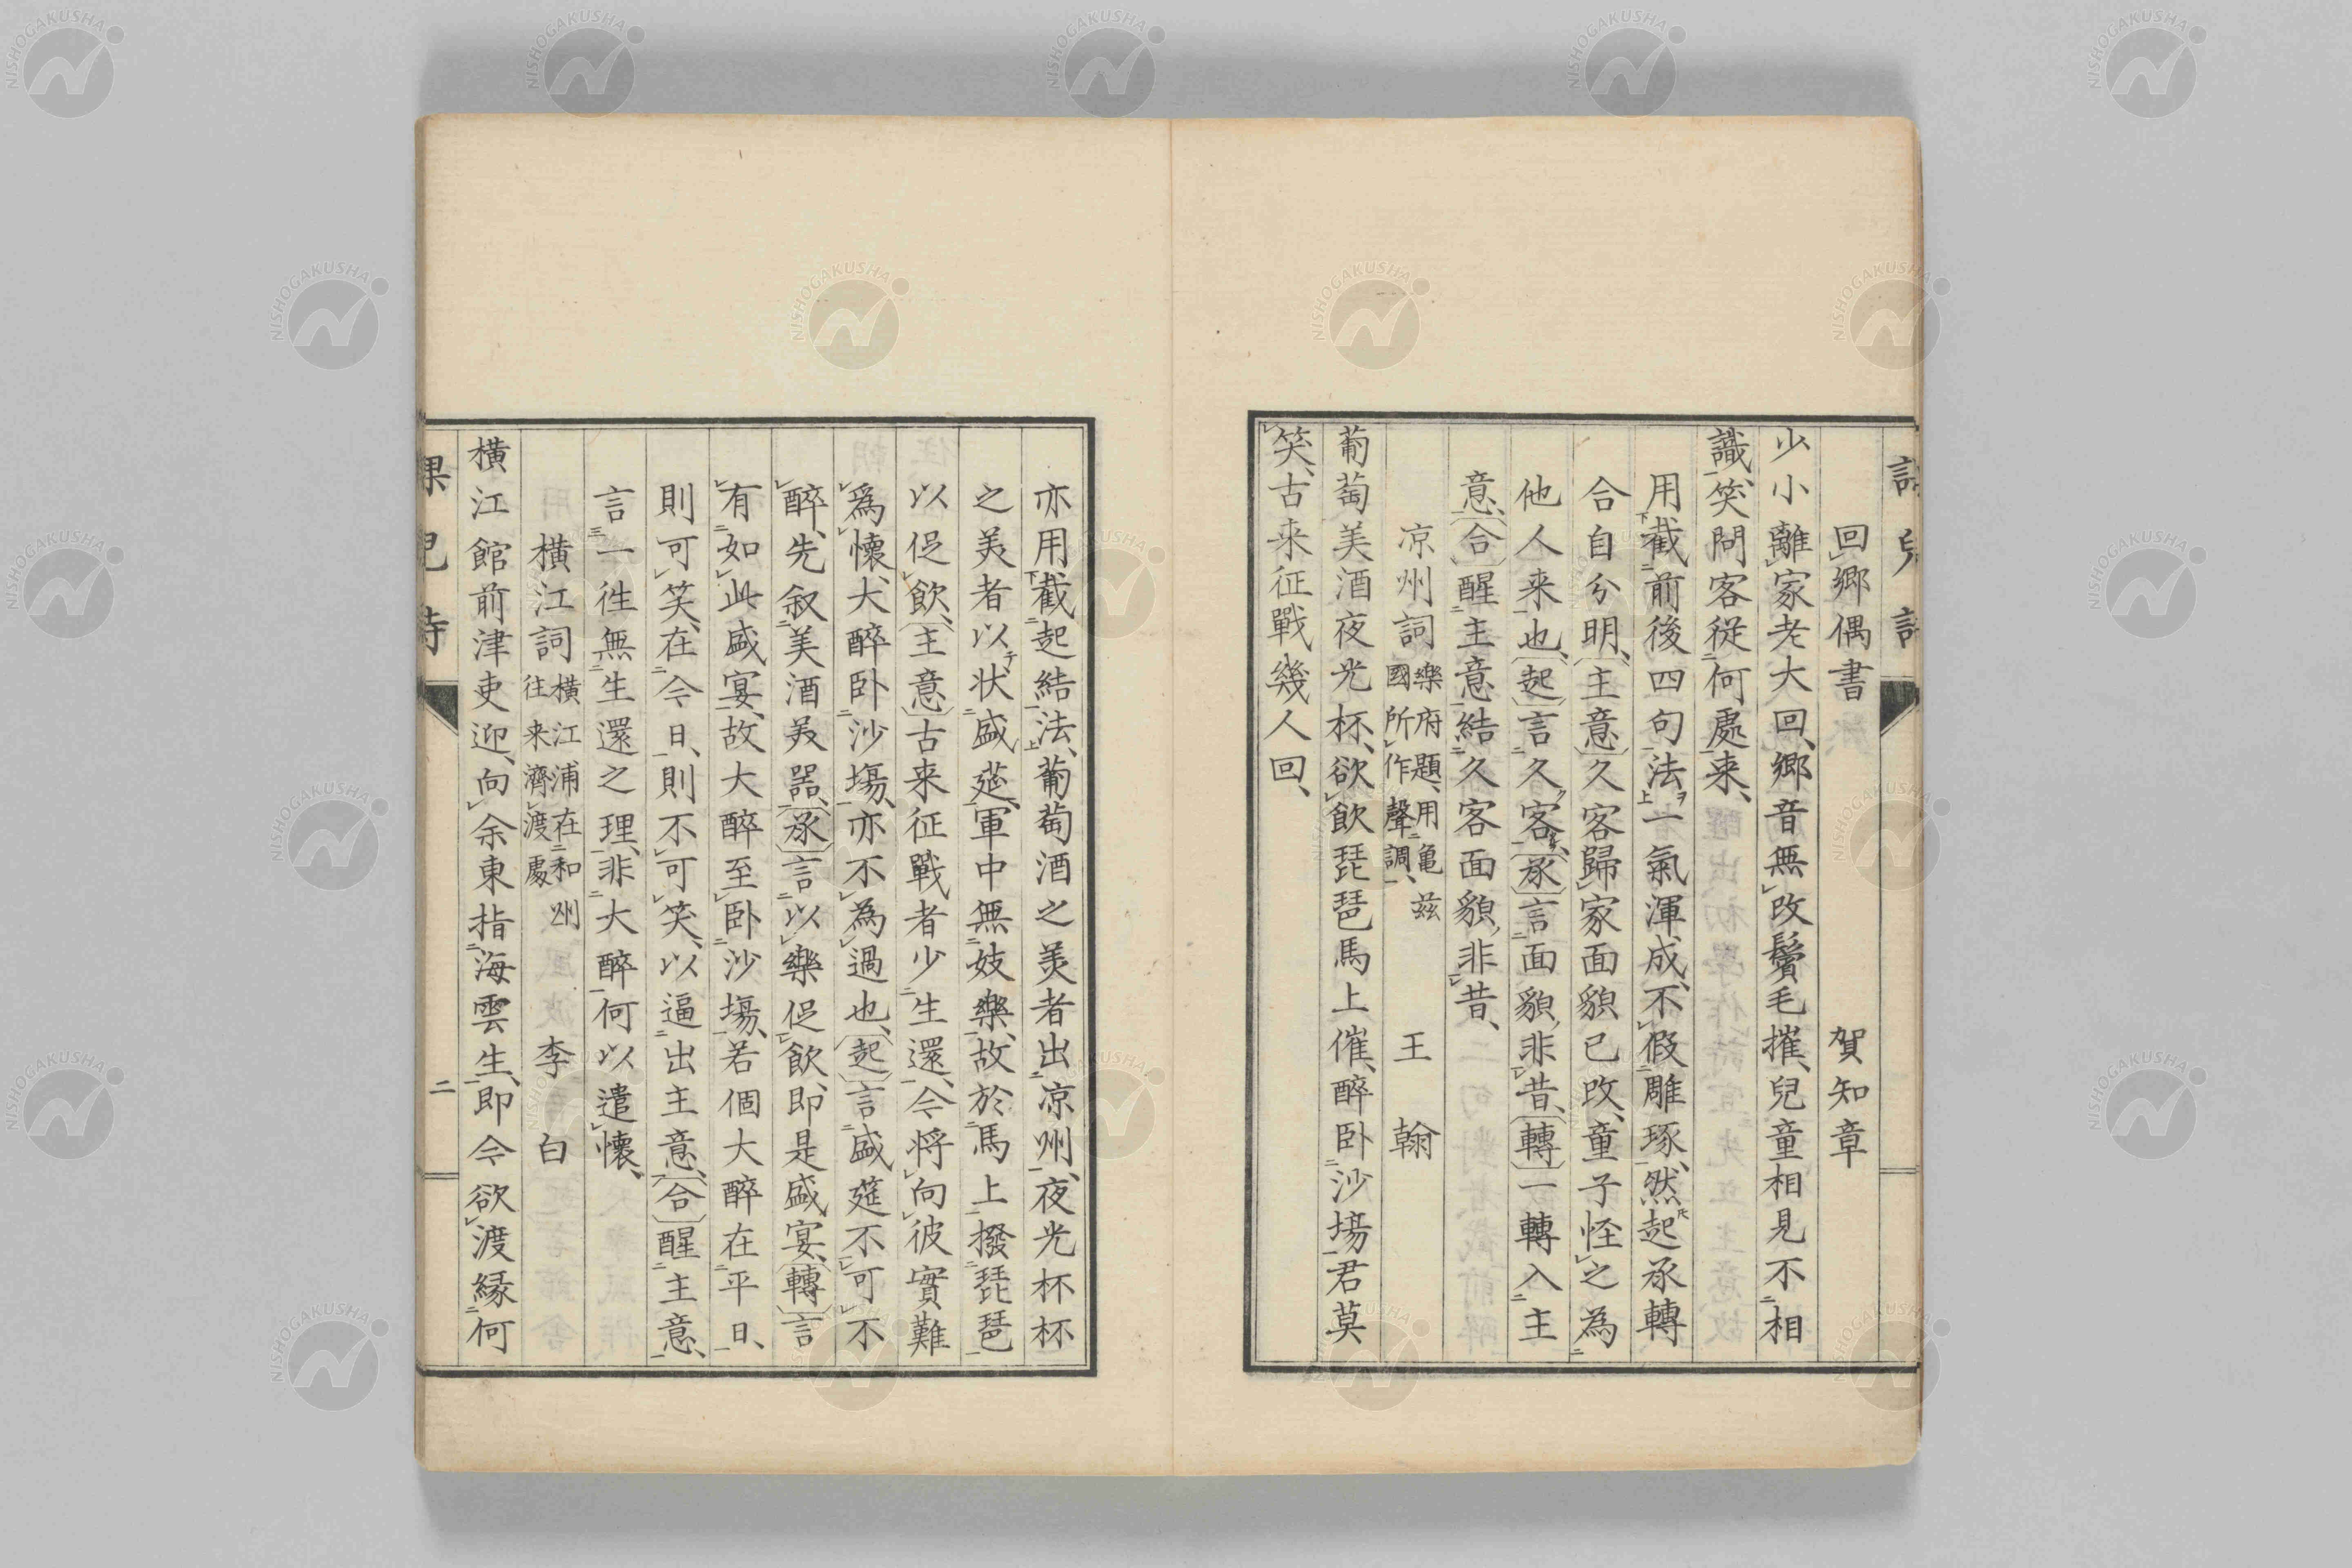 課兒詩
回郷偶書　賀知章
少小離家老大回、郷音無改鬢毛摧、兒童相見不相
識、笑問客従何處来、
用截前後四句法一氣渾成、不假雕琢、然起承轉
合自分明、主意久客歸家面貌已改、童子怪之為
他人来也、起言久客、承言面貌非昔、轉一轉入主
意、合醒主意結久客面貌非昔、
凉州詞　樂府題、用亀兹國所作聲調、　王翰
葡萄美酒夜光杯、欲飲琵琶馬上催、醉卧沙場君莫
笑、古来征戰幾人回、
亦用截起結法、葡萄酒之美者出凉州、夜光杯杯
之美者以状盛莚、軍中無妓樂、故於馬上撥琵琶
以促飲、主意古来征戰者少生還、今将向彼實難
爲懐、大醉卧沙場、亦不為過也、起言盛筵不可不
醉、先叙美酒美噐、承言以樂促飲、即是盛宴、轉言
有如此盛宴、故大醉至卧沙場、若個大醉在平日、
則可笑、在今日、則不可笑、以逼出主意、合醒主意、
言一往無生還之理、非大醉何以遣懐、
横江詞　横江浦在和州往来濟渡處　李白
横江館前津吏迎、向余東指海雲生、即今欲渡縁何
課兒詩
二
NISHOGAKUSHA